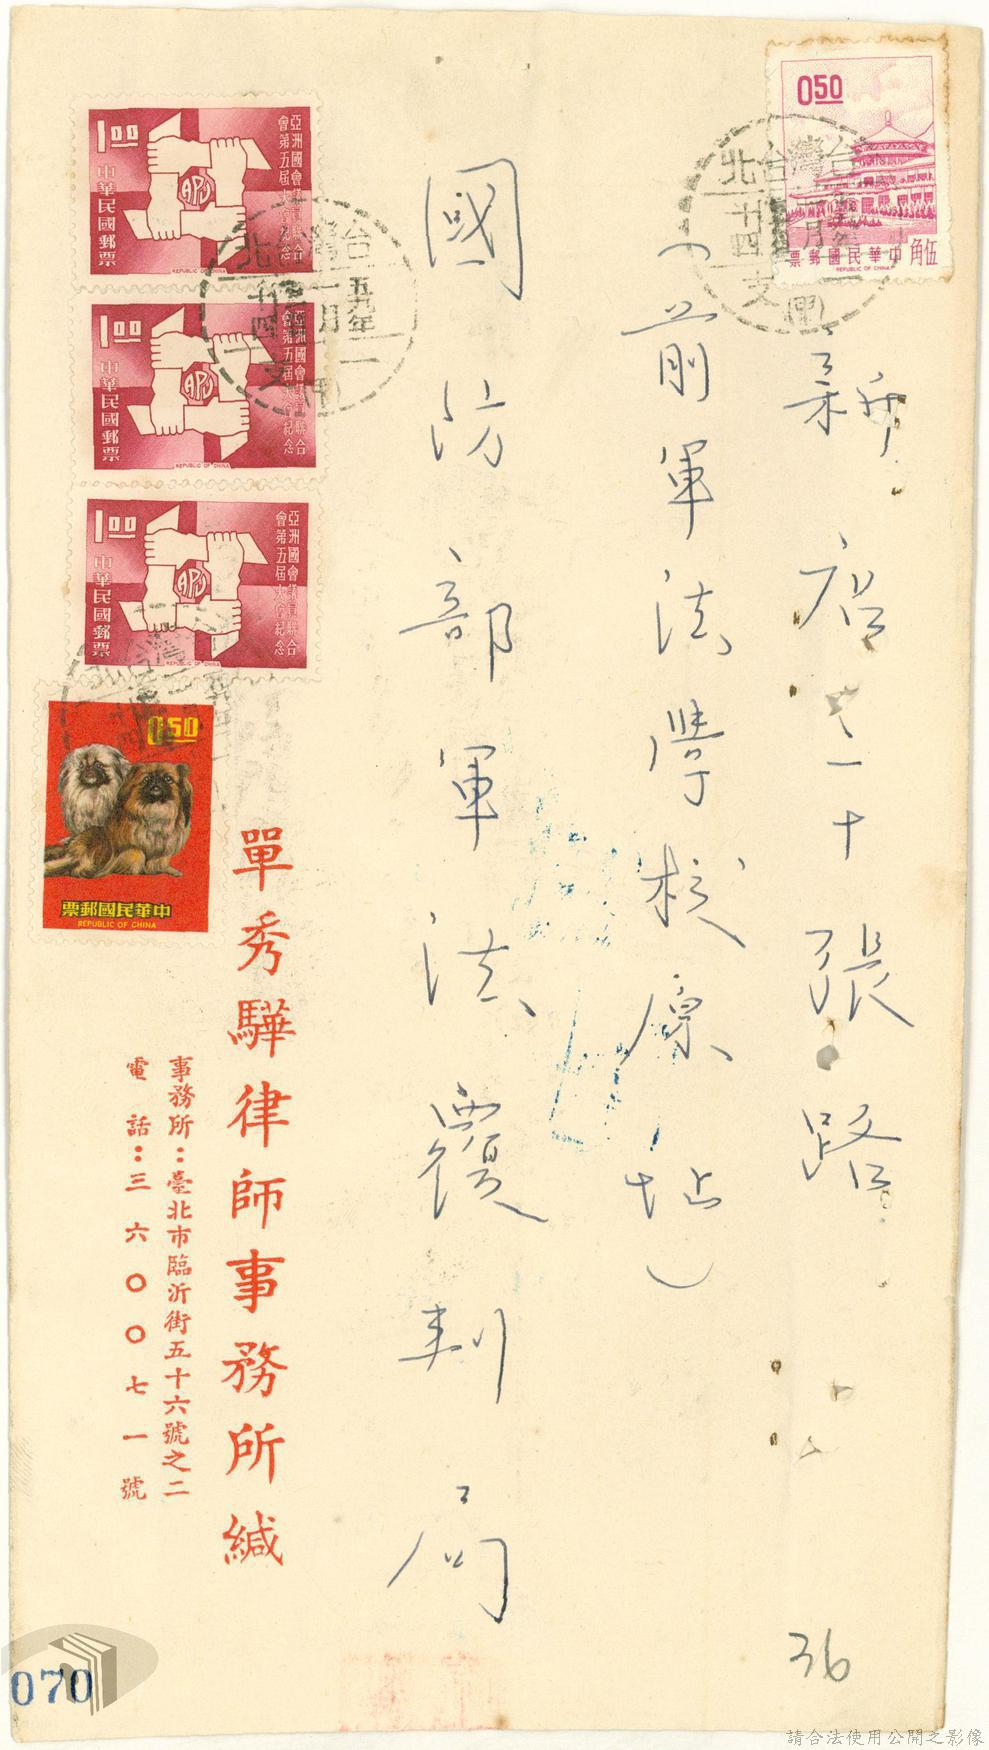 新店二十張路
（前軍法學校原址）
國防部軍法覆判局
單秀驊律師事務所緘
事務所：臺北市臨沂街五十六號之二
電話：三六〇〇七一號
0.50
伍角 中華民國郵票
REPUBLIC OF CHINA
1.00
中華民國郵票
亞洲國會議員聯合
會第五屆大會紀念
APU
REPUBLIC OF CHINA
1.00
中華民國郵票
亞洲國會議員聯合
會第五屆大會紀念
APU
REPUBLIC OF CHINA
1.00
中華民國郵票
亞洲國會議員聯合
會第五屆大會紀念
APU
REPUBLIC OF CHINA
0.50
中華民國郵票
REPUBLIC OF CHINA
36
070
請合法使用公開之影像